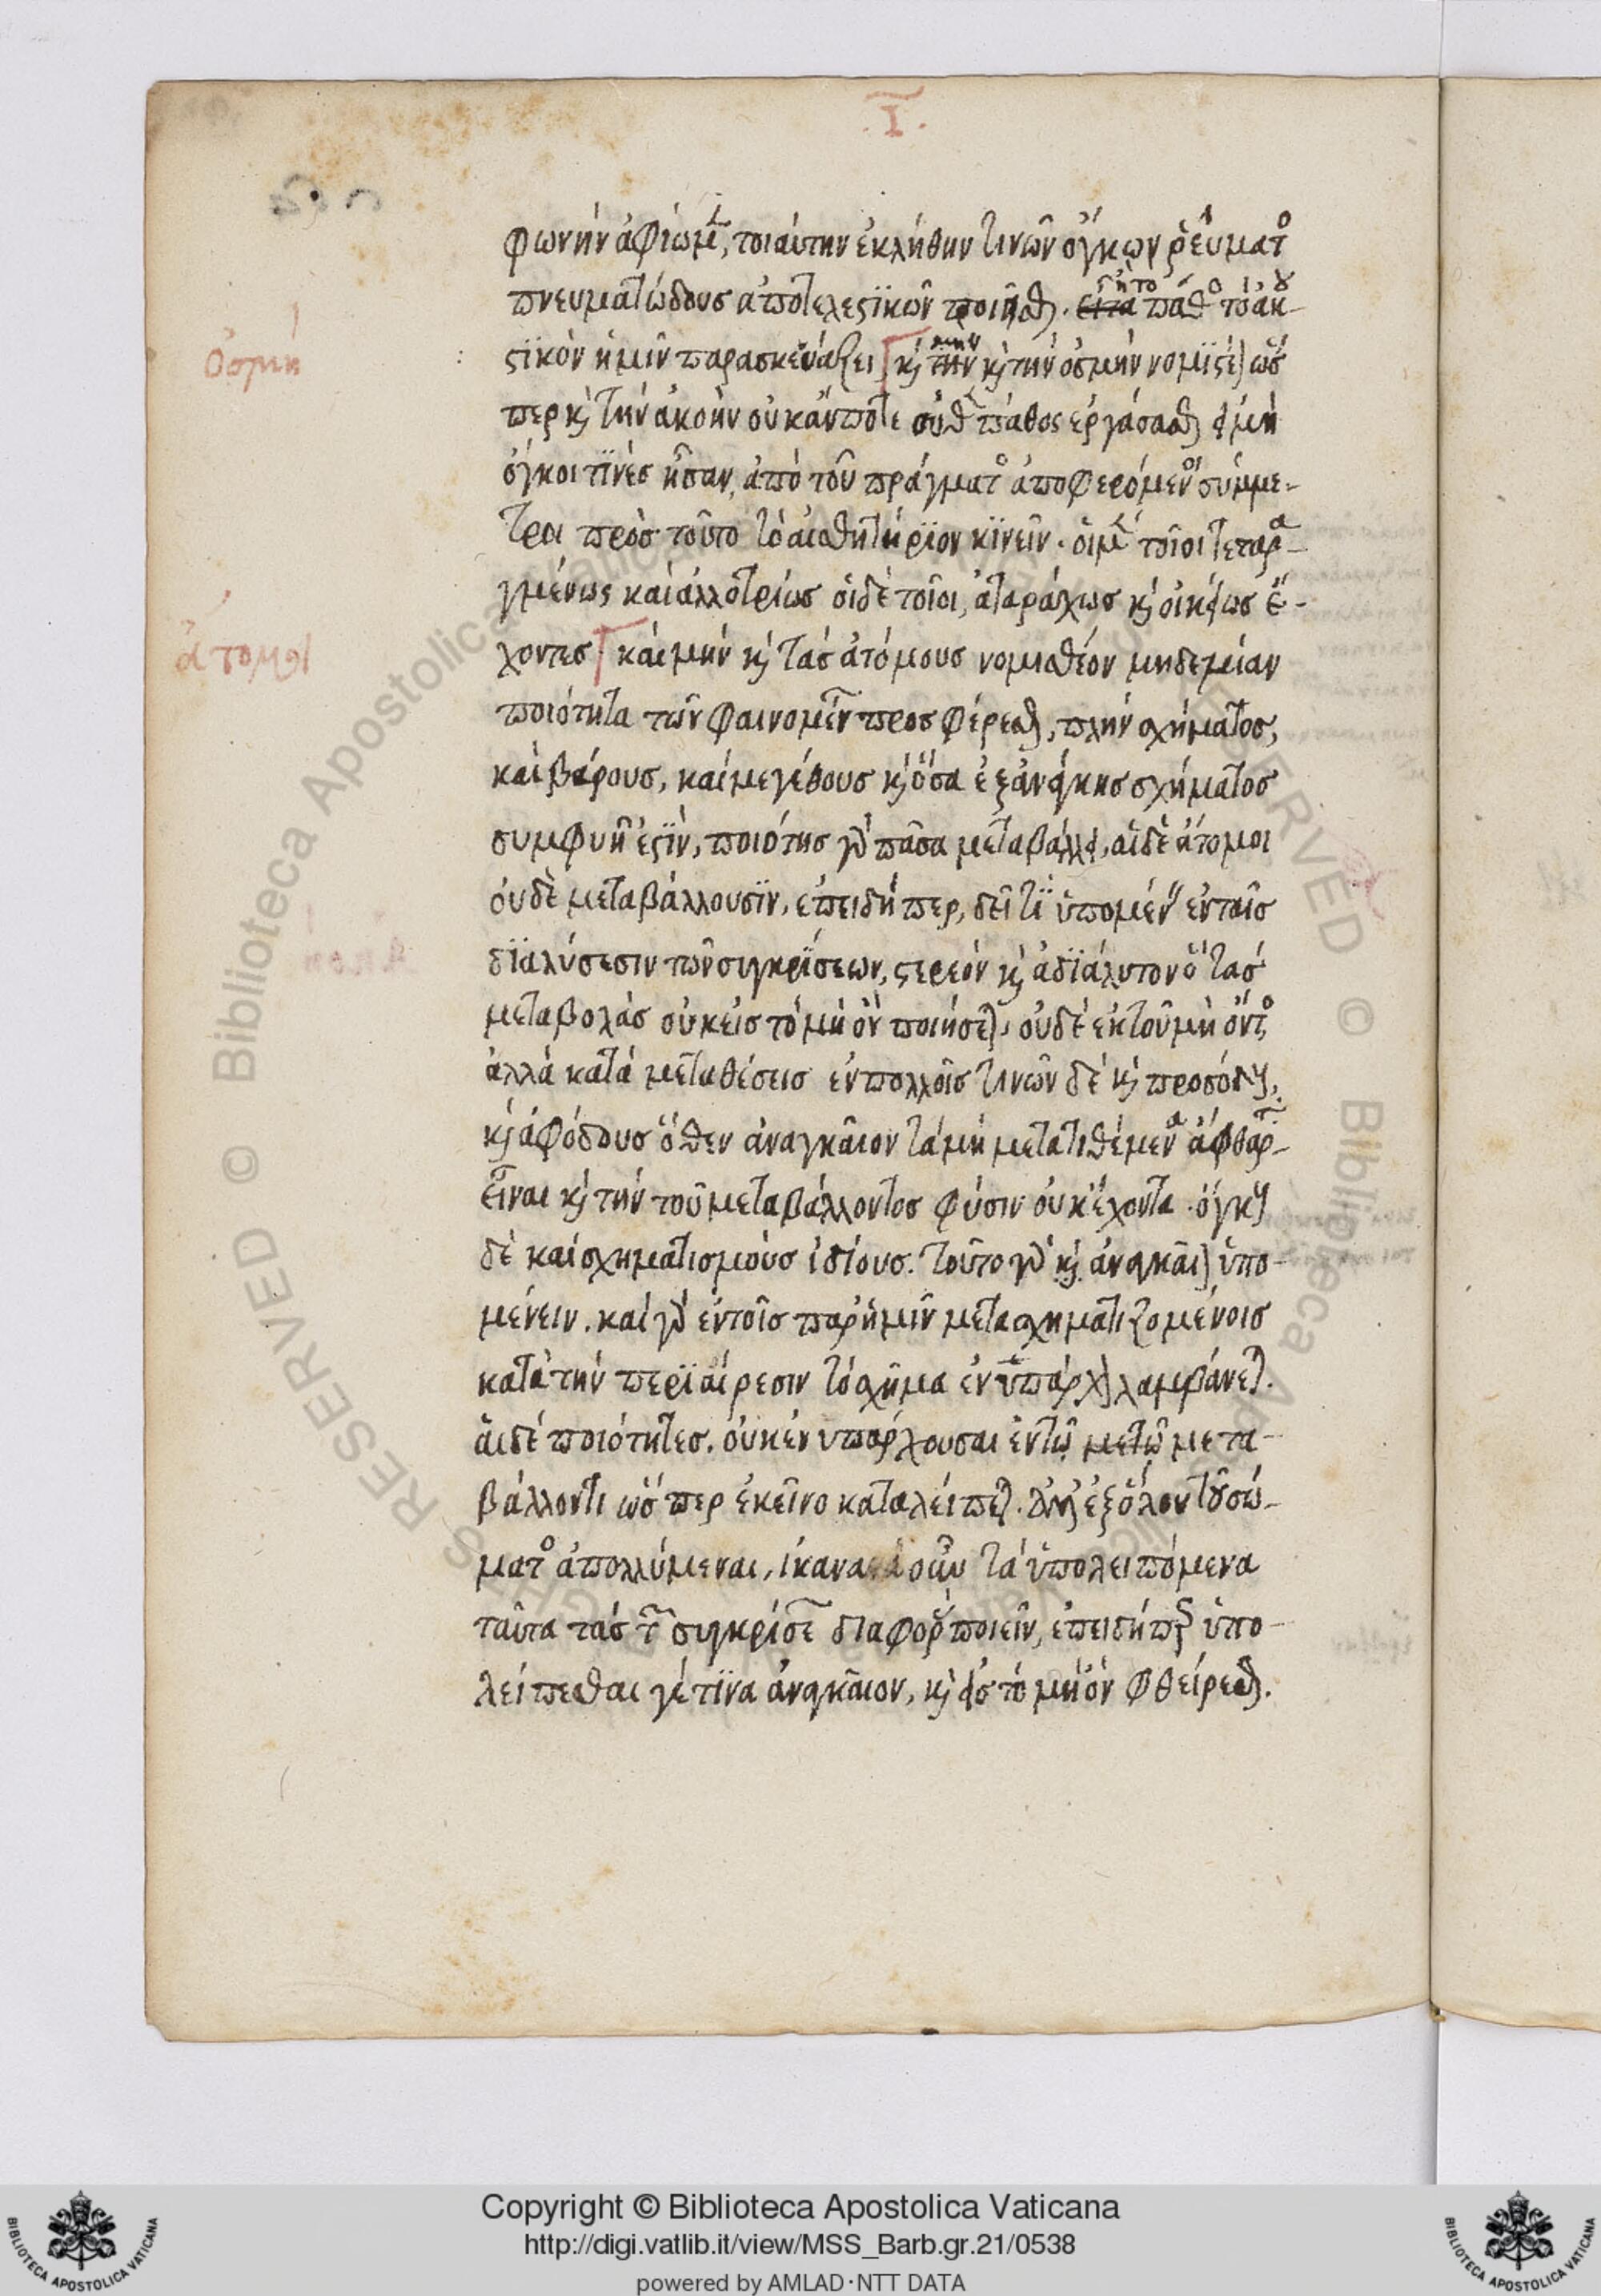 .Ι.
φωνὴν ἀφίωμεν, τοιαύτην ἐκλήθην τινῶν ὄγκων ῥεύματος
πνευματώδους ἀποτελεστικῶν ποιῆσθαι. πάθος τὸ ἀκου-
ὀσμή
στικὸν ἡμῖν παρασκευάζει καὶ μὴν καὶ τὴν ὀσμὴν νομιστέον ὥσ
περ καὶ τὴν ἀκοὴν οὐκ ἄν ποτε οὐθὲν πάθος ἐργάσασθαι εἰ μὴ
ὄγκοι τινὲς ἦσαν, ἀπὸ τοῦ πράγματος ἀποφερόμενοι σύμμε-
τροι πρὸς τοῦτο τὸ αἰσθητήριον κινεῖν. οἱ μὲν τοῖοι τεταρα-
γμένως καὶ ἀλλοτρίως οἱ δὲ τοῖοι, ἀταράχως καὶ οἰκείως ἔ-
ἄτομοι
χοντες καὶ μὴν καὶ τὰς ἀτόμους νομιστέον μηδεμίαν
ποιότητα τῶν φαινομένων προσφέρεσθαι, πλὴν σχήματος,
καὶ βάρους, καὶ μεγέθους καὶ ὅσα ἐξ ἀνάγκης σχήματος
συμφυῆ ἐστὶν, ποιότης γὰρ πᾶσα μεταβάλλει, αἱ δὲ ἄτομοι
οὐδὲ μεταβάλλουσιν, ἐπειδήπερ, δεῖ τι ὑπομένειν ἐν ταῖς
διαλύσεσιν τῶν συγκρίσεων, στερεὸν καὶ ἀδιάλυτον ὃ τὰς
μεταβολὰς οὐκ εἰς τὸ μὴ ὂν ποιήσεται, οὐδὲ ἐκ τοῦ μὴ ὄντος
ἀλλὰ κατὰ μεταθέσεις ἐν πολλοῖς τινῶν δὲ καὶ προσόδους,
καὶ ἀφόδους ὅθεν ἀναγκαῖον τὰ μὴ μετατιθέμενα ἄφθαρτα
εἶναι καὶ τὴν τοῦ μεταβάλλοντος φύσιν οὐκ ἔχοντα. ὄγκους
δὲ καὶ σχηματισμοὺς ἰδίους. τοῦτο γὰρ καὶ ἀναγκαῖον ὑπο-
μένειν. καὶ γὰρ ἐν τοῖς παρ' ἡμῖν μετασχηματιζομένοις
κατὰ τὴν περιαίρεσιν τὸ σχῆμα ἐνυπάρχον λαμβάνεται.
αἱ δὲ ποιότητες. οὐκ ἐνυπάρχουσαι ἐν τῷ μετῶ μετα-
βάλλοντι ὥσπερ ἐκεῖνο καταλείπεται. ἀλλ' ἐξ ὅλου τοῦ σώ-
ματος ἀπολλύμεναι, ἱκανὰ οὖν τὰ ὑπολειπόμενα
ταῦτα τὰς τῶν συγκρίσεων διαφορὰς ποιεῖν, ἐπειδήπερ ὑπο-
λείπεσθαι γέ τινα ἀναγκαῖον, καὶ εἰς τὸ μὴ ὂν φθείρεσθαι.
Copyright © Biblioteca Apostolica Vaticana
http://digi.vatlib.it/view/MSS_Barb.gr.21/0538
powered by AMLAD·NTT DATA